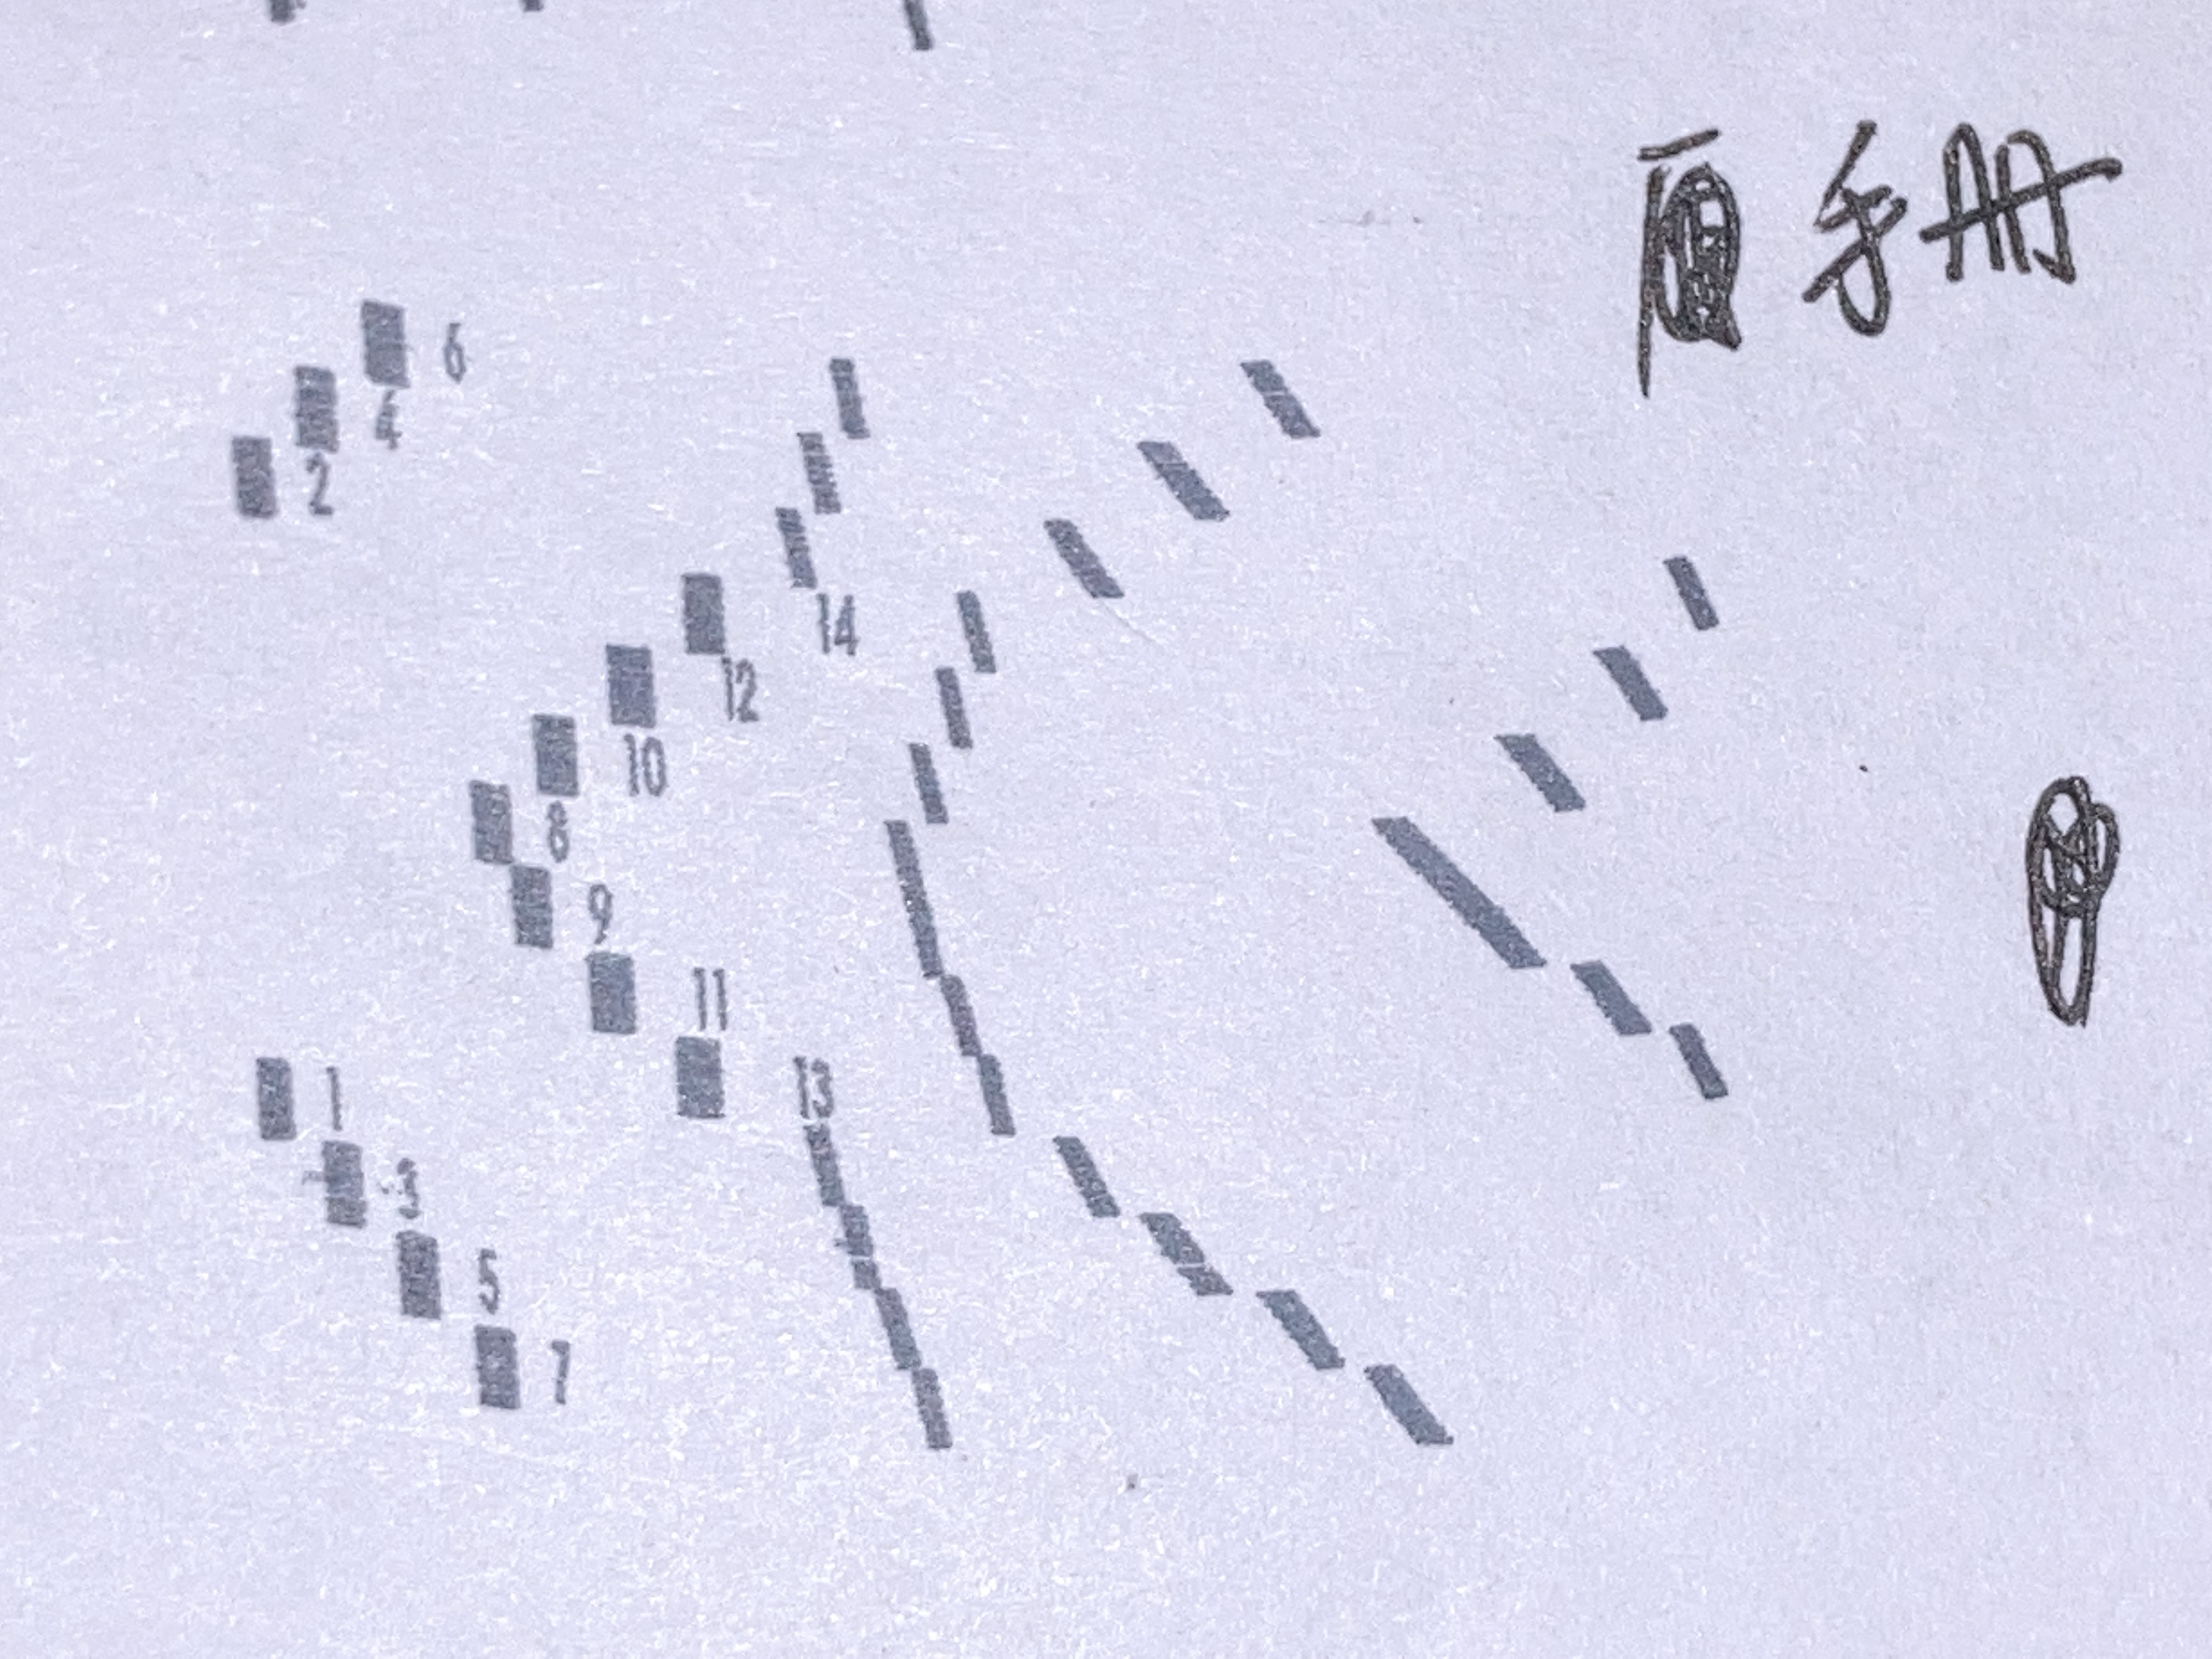 手册
6
4
2
14
12
10
8
9
11
13
1
3
5
7